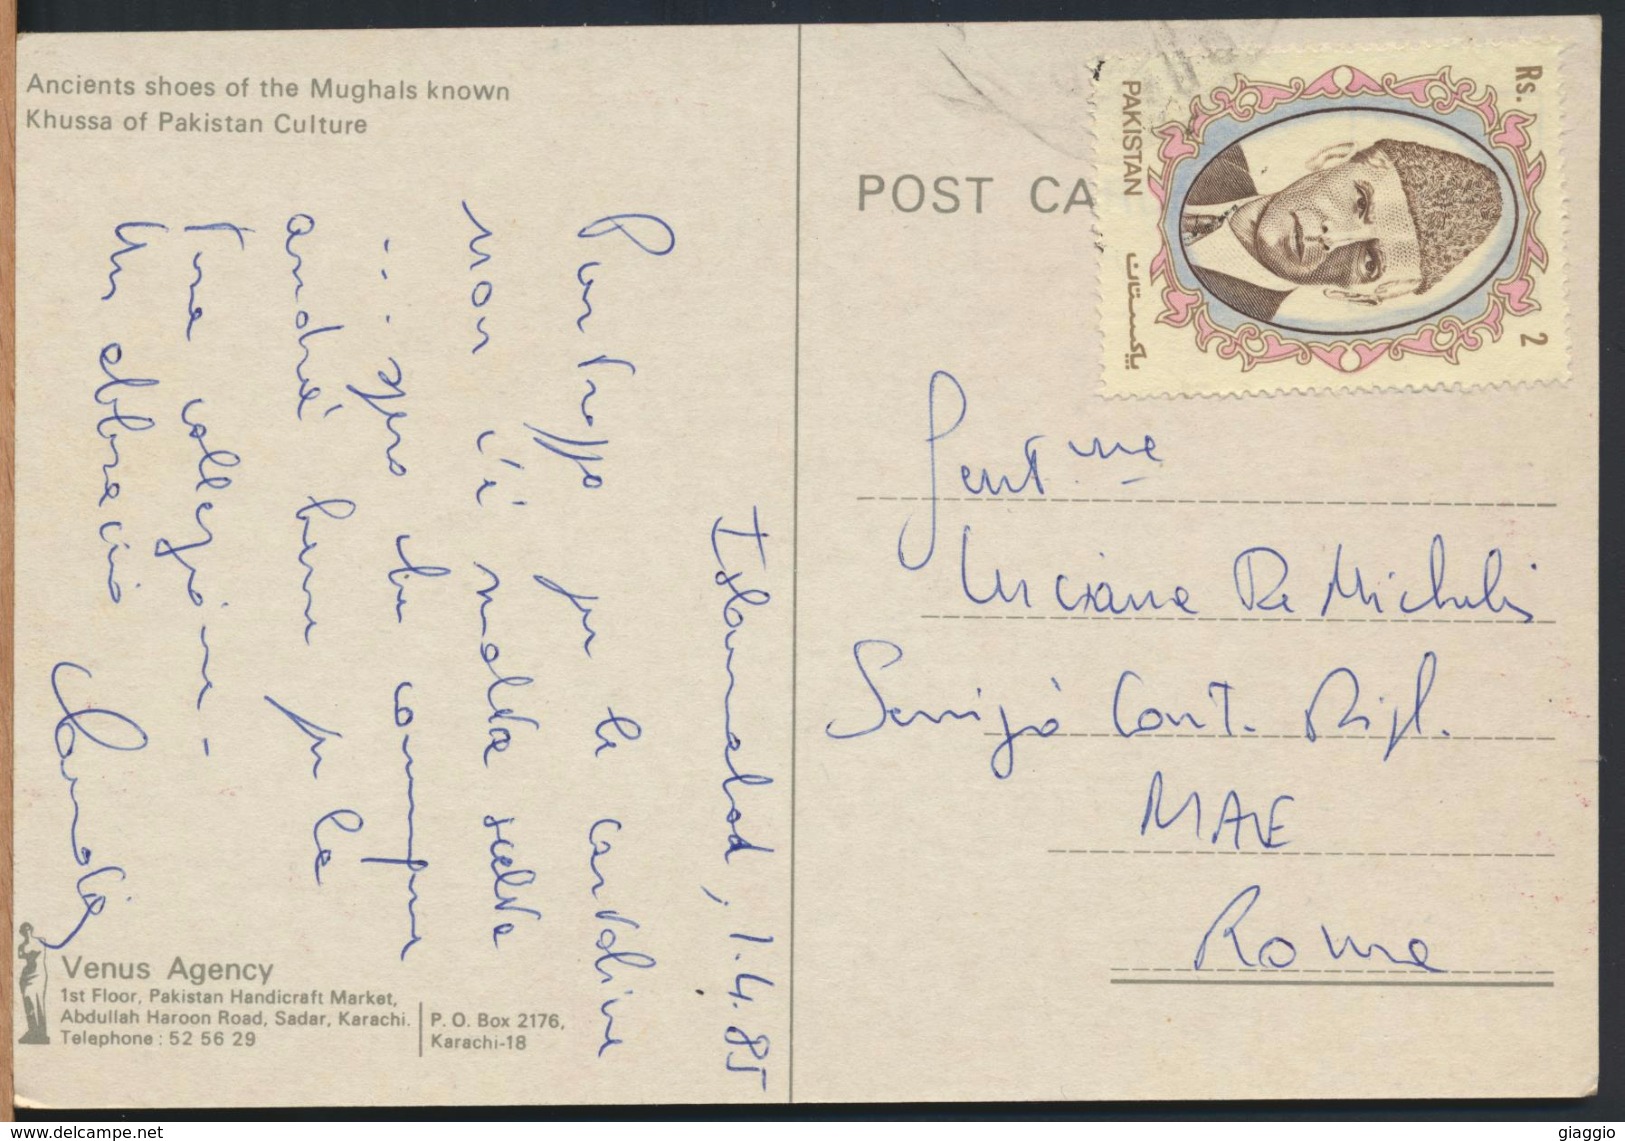 Ancients shoes of the Mughals known
Khussa of Pakistan Culture
Islamabad, 1.4.85
Purtroppo per le cartoline
non c'è molta scelta
... spero che comunque
andrà bene per la
tua collezione -
Un abbraccio
Venus Agency
1st Floor, Pakistan Handicraft Market,
Abdullah Haroon Road, Sadar, Karachi.
Telephone : 52 56 29
P. O. Box 2176,
Karachi-18
POST CA
Rs. 2
PAKISTAN
پاکستان
Gent.ma
Luciana De Michelis
Servizio Cont. Dipl.
MAE
Roma
www.delcampe.net
giaggio